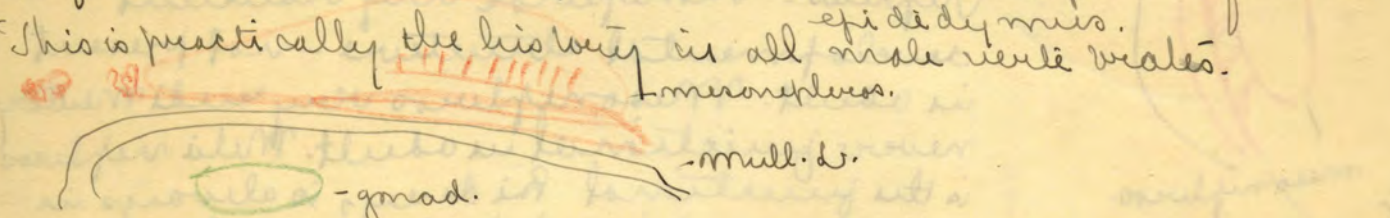 epididymis.
This is practically the history in all male vertebrates.
mesonephros.
- mull. d.
- gonad.